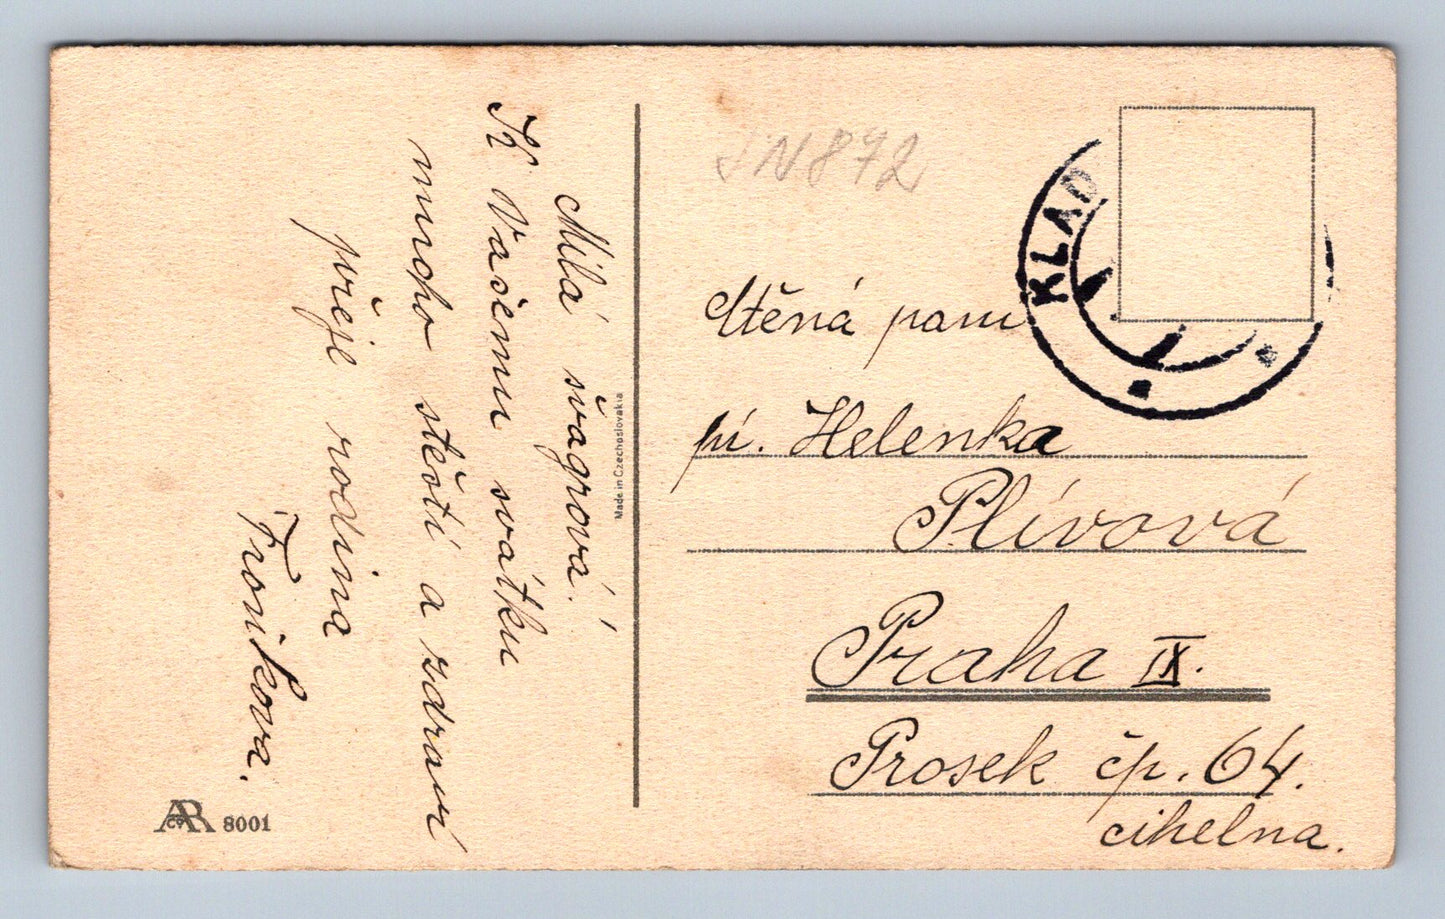 Milá švagrová!
K Vašemu svátku
mnoho štěstí a zdraví
přeje rodina
Froníkova.
Made in Czechoslovakia
AR
8001
JN872
KLAD
Ctěná paní
pí. Helenka
Plívová
Praha IX.
Prosek čp. 64.
cihelna.